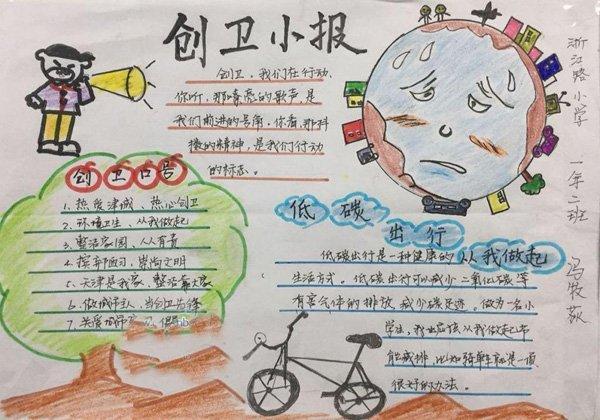 创卫小报
创卫，我们在行动，
你听，那嘹亮的歌声，是
我们前进的号角，你看，那抖
擞的精神，是我们行动
的标志。
浙江路小学 一年二班
创卫口号
1、热爱津城，热心创卫
2、环境卫生，从我做起
3、整洁家园，人人有责
4、摈弃陋习，崇尚文明
5、天津是我家，整洁靠大家
6、做城市主人，当创卫先锋
7、关爱城市
低碳出行
从我做起
低碳出行是一种健康的
生活方式。低碳出行可以减少二氧化碳等
有害气体的排放，减少碳足迹。做为一名小
学生，我也应该从我做起节
能减排，比如骑单车就是一项
很好的办法。